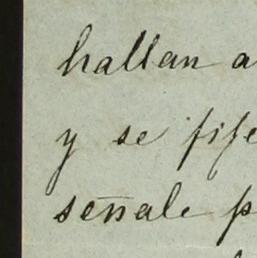 hallan a
y se fife
señale p